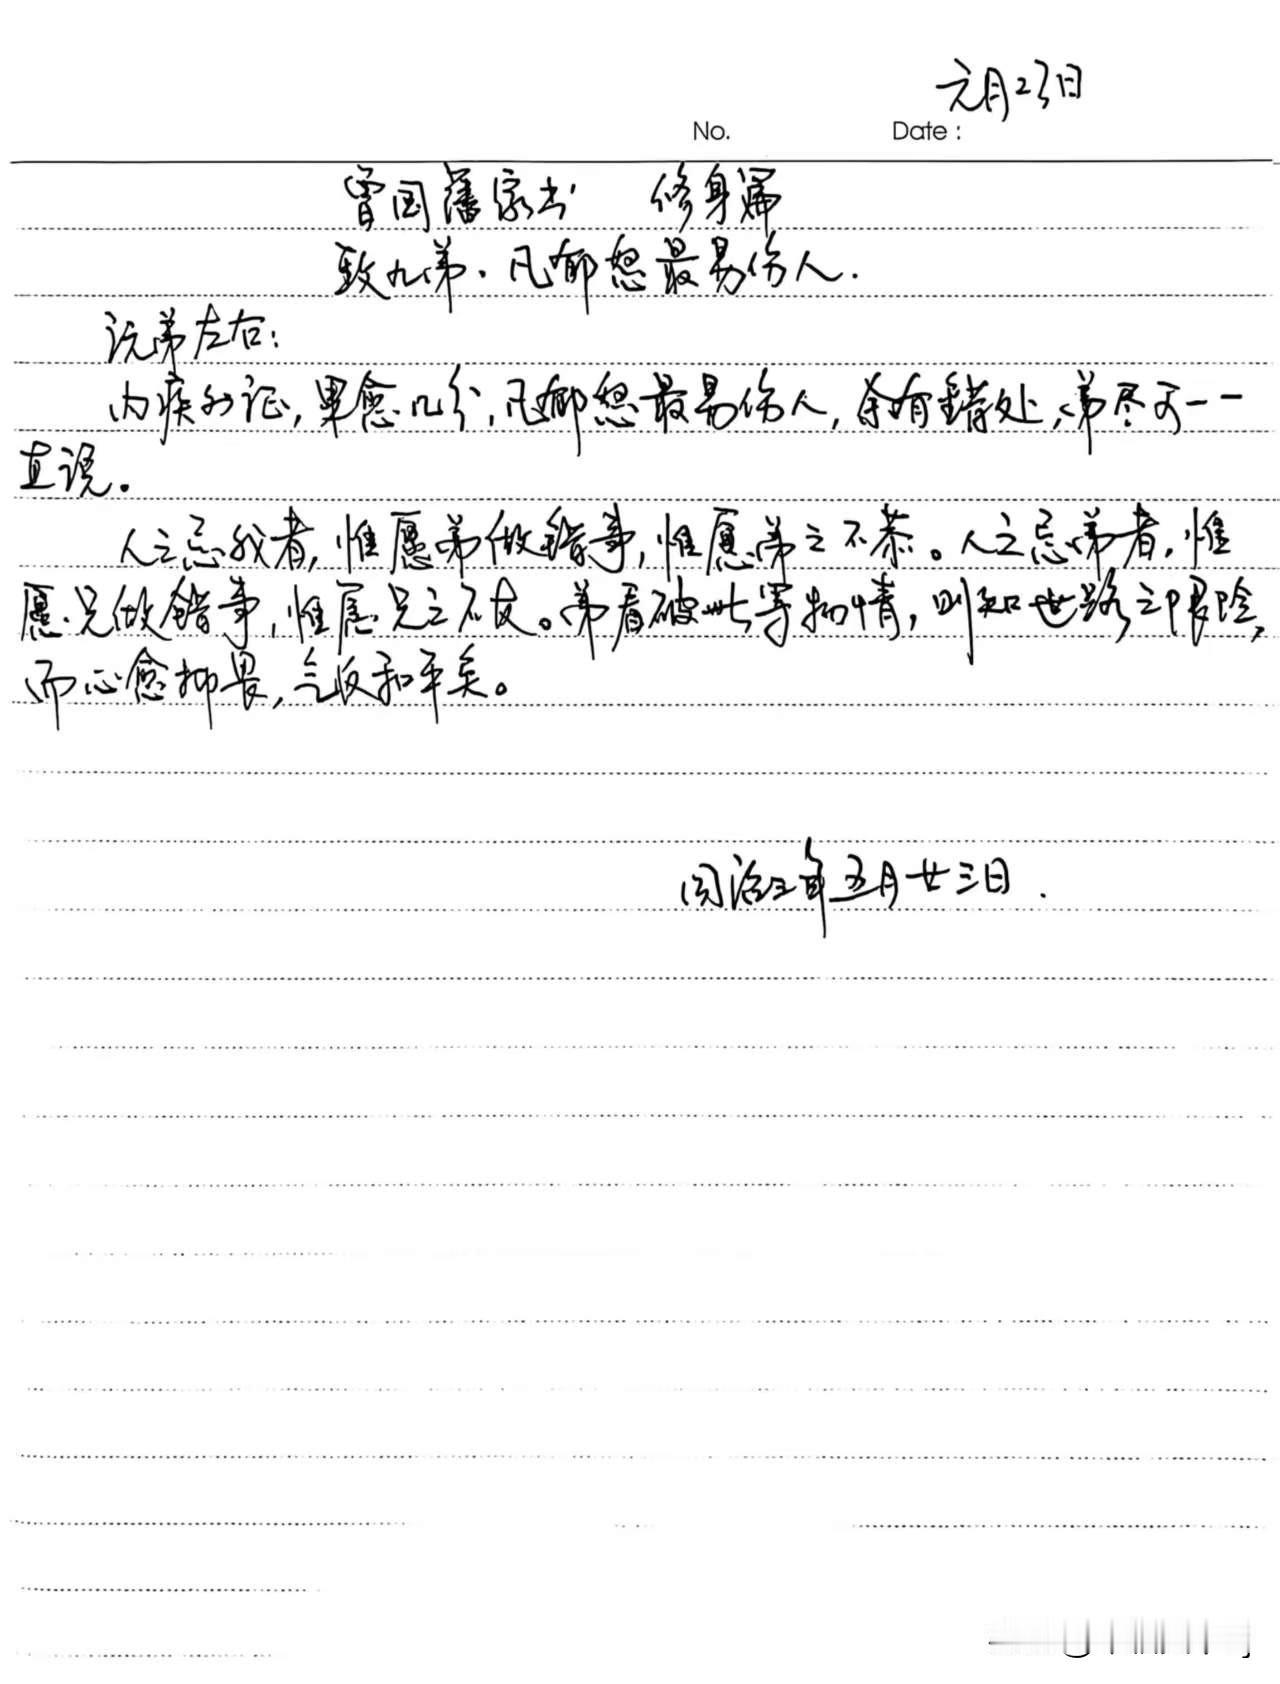 元月23日
No. Date:
曾国藩家书 修身篇
致九弟.凡郁怒最易伤人.
沅弟左右:
内疾外证,果愈几分,凡郁怒最易伤人,余有错处,弟尽可一一
直说。
人之忌我者,惟愿弟做错事,惟愿弟之不恭。人之忌弟者,惟
愿兄做错事,惟愿兄之不友。弟看破此等物情,则知世路之艰险,
而心愈抑畏,气反和平矣。
同治三年五月廿三日.